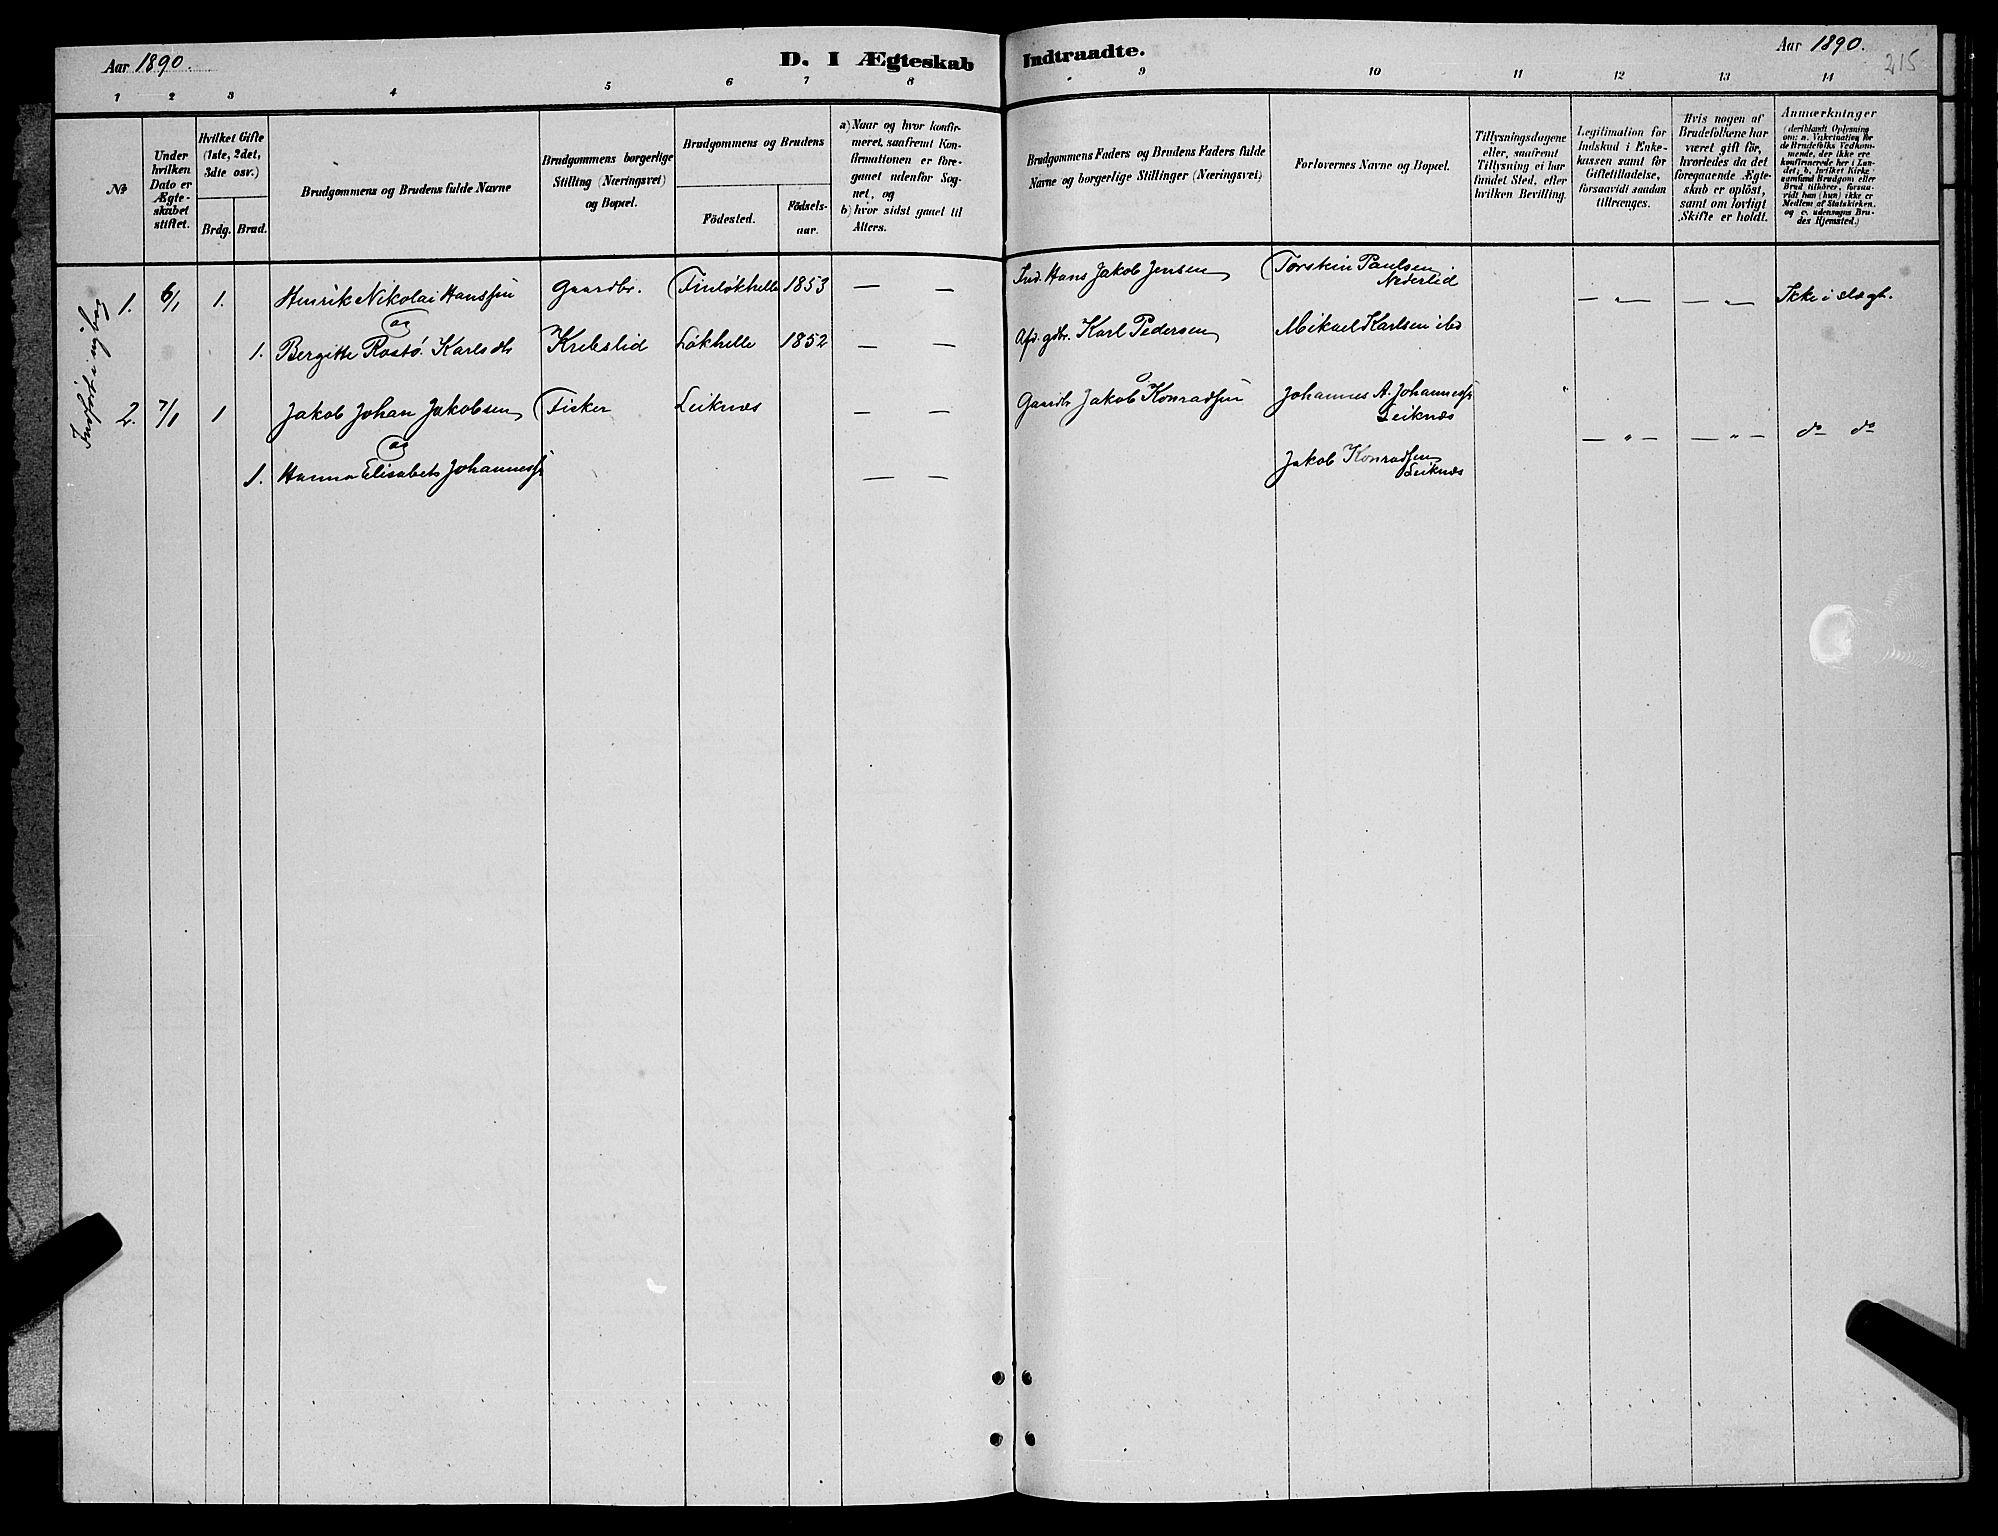 Aar 1890.
D. I Ægteskab Indtraadte.
Aar 1890.
215
1 2 3 4 5 6 7 8 9 10 11 12 13 14
№
Under hvilken Dato er Ægte-skabet stiftet.
Hvilket Gifte (1ste, 2det, 3die osv.)
Brdg. Brud.
Brudgommens og Brudens fulde Navne
Brudgommens borgerlige Stilling (Næringsvei) og Bopæl.
Brudgommens og Brudens
Födested.
Födsels-aar.
a) Naar og hvor konfir-meret, saafremt Kon-firmationen er fore-gaaet udenfor Sog-net, og
b) hvor sidst gaaet til Alters.
Brudgommens Faders og Brudens Faders fulde Navne og borgerlige Stillinger (Næringsvei)
Forlovernes Navne og Bopæl.
Tillysningsdagene eller, saafremt Tillysning ei har fundet Sted, efter hvilken Bevilling.
Legitimation for Indskud i Enke-kassen samt for Giftetilladelse, forsaavidt saadan tiltrænges.
Hvis nogen af Brudefolkene har været gift för, hvorledes da det foregaaende Ægte-skab er oplöst, samt om lovligt Skifte er holdt.
Anmærkninger
(deriblandt Oplysning om: a. Vakcination for de Brudefolks Vedkom-mende, der ikke ere konfirmerede her i Lan-det; b. hvilket Kirke-samfund Brudgom eller Brud tilhörer, forsaa-vidt han (hun) ikke er Medlem af Statskirken, og c. udensogns Bru-des Hjemsted.)
Indført i ny bog
1. 6/1 1. Henrik Nikolai Hanssen Gaardbr. Finløkhelle 1853 — — Ind. Hans Jakob Jensen Torstein Paulsen Nederlid — „ — — „ — Ikke i slægt.
og
1. Bergitte Rostø Karlsdtr Krebslid Løkhelle 1852 — — Afd. gdbr. Karl Pedersen Mikael Karlsen ibd
2. 7/1 1 Jakob Johan Jakobsen Fisker Leiknes — — Gaardbr Jakob Konradsen Johannes A. Johanness. Leiknes
og — „ — — „ — do do
1. Hanna Elisabets Johannessdr — — Jakob Konradsen Leiknes